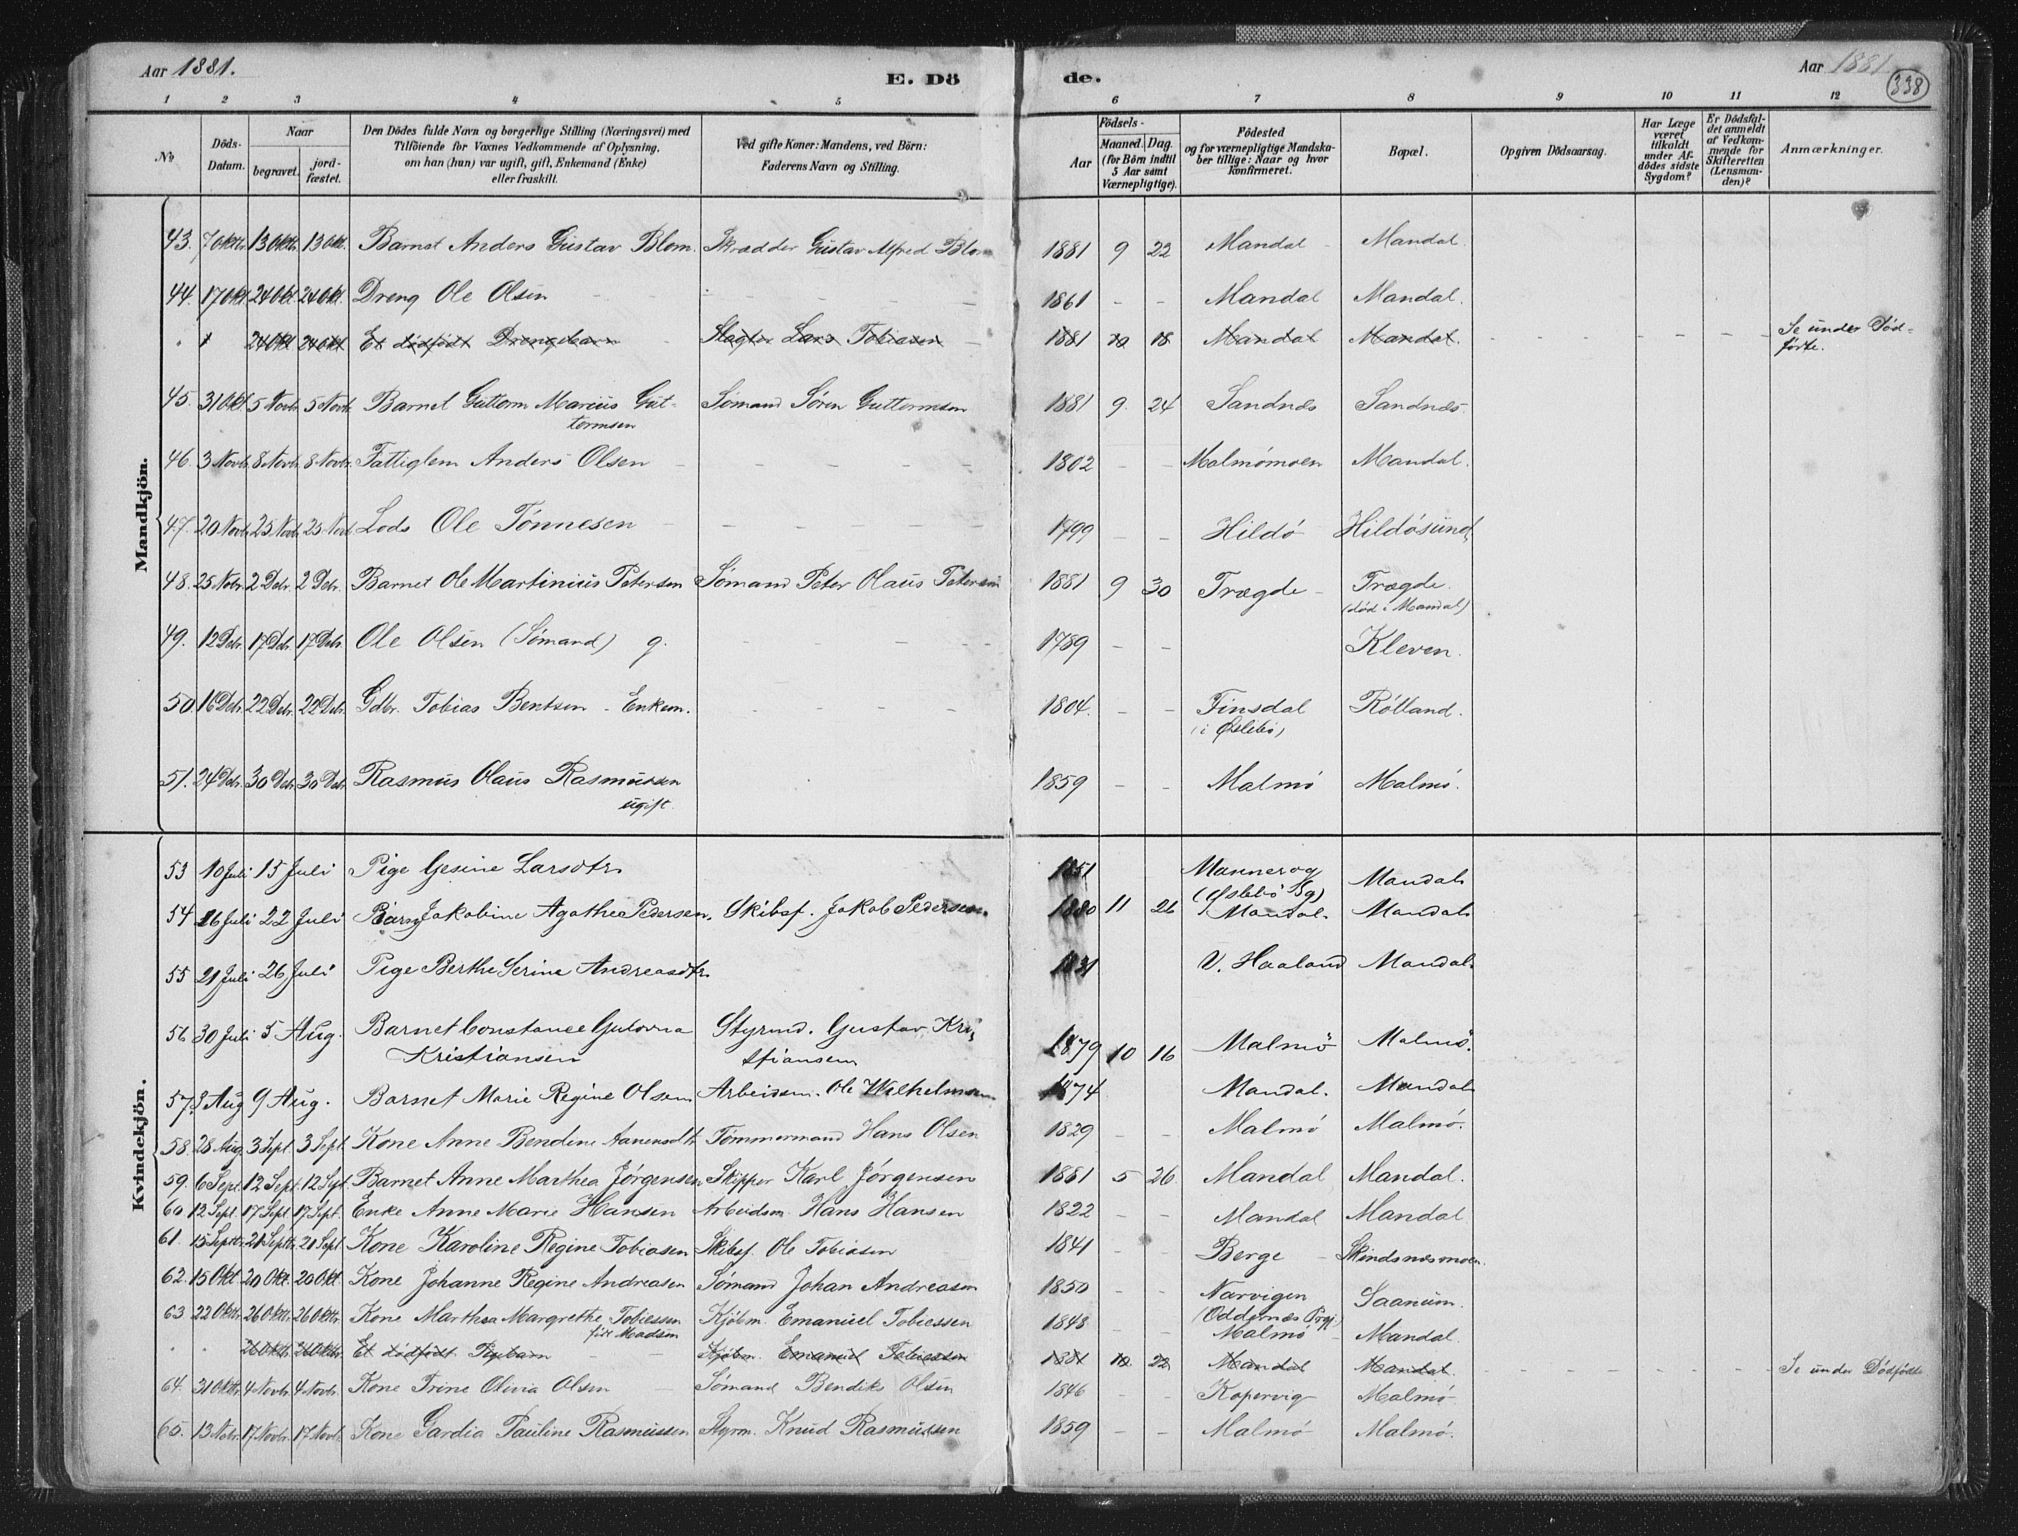 Aar 1881.
E. Dö de.
Aar 1881
338
1 2 3 4 5 6 7 8 9 10 11 12
No
Döds-Datum.
Naar
begravet.
jordfæstet.
Den Dödes fulde Navn og borgerlige Stilling (Næringsvei) med
Tilföiende for Voxnes Vedkommende af Oplysning,
om han (hun) var ugift, gift, Enkemand (Enke)
eller fraskilt.
Ved gifte Koner: Mandens, ved Börn:
Faderens Navn og Stilling.
Födsels-
Aar
Maaned. Dag.
(for Börn indtil
5 Aar samt
Værnepligtige).
Födested
og for værnepligtige Mandska-
ber tillige: Naar og hvor
konfirmeret.
Bopæl.
Opgiven Dödsaarsag.
Har Læge
været
tilkaldt
under Af-
dödes sidste
Sygdom?
Er Dödsfal-
det anmeldt
af Vedkom-
mende for
Skifteretten
(Lensman-
den)?
Anmærkninger.
Mandkjön.
43. 7 Oktr. 13 Oktr. 13 Okt. Barnet Anders Gustav Blom. Skrædder Gustav Alfred Blom 1881 9 22 Mandal - Mandal.
44. 17 Okt. 24 Okt. 24 Okt. Dreng Ole Olsen - - - - - 1861 - - Mandal Mandal.
24 Okt 24 Okt Et dødfødt Drengebarn Slagter Lars Tobiasen - 1881 10 18 Mandal Mandal. - - - - Se under Død-
førte.
45. 31 Okt. 5 Novbr. 5 Novbr. Barnet Guttorm Marius Gut- Sømand Sören Guttormsen 1881 9. 24 Sandnæs Sandnæs.
tormsen
46. 3 Novbr. 8 Novbr. 8 Novbr. Fattiglem Anders Olsen - - - - 1802 - - Malmömoen Mandal.
47. 20 Novbr. 25 Novbr. 25 Novb. Lods Ole Tönnesen - - - - 1799 - - Hildö Hildösund,
48. 25 Nobr. 2 Debr. 2 Debr. Barnet Ole Martinius Petersen Sømand Peter Olaus Petersen 1881 9 30 Trægde - Trægde.
(död i Mandal)
49. 12 Debr. 17 Debr. 17 Debr. Ole Olsen (Sømand) g. - - - - 1789 - - Kleven.
50. 16 Debr. 22 Debr. 22 Debr. Gdbr. Tobias Bentsen - Enkem. - - - - 1804. - - Finsdal Rölland.
(i Øslebö)
51. 24 Debr. 30 Debr. 30 Debr. Rasmus Olaus Rasmussen 1859 - - Malmö Malmö.
ugift.
Kvindekjön.
53 10 Juli 15 Juli Pige Gesine Larsdtr. 1851 Mannerog Mandal.
(Øslebö Sg)
54 16 Juli 22 Juli Barn Jakobine Agathea Pedersen. Skibsf. Jakob Pedersen. 1880 11 26 Mandal. Mandal.
55 21 Juli 26 Juli Pige Berthe Serine Andreasdtr. V. Haaland Mandal.
56 30 Juli 5 Aug. Barnet Constance Gulovna Styrmd. Gustav Kri- 1879 10 16 Malmö Malmö.
Kristiansen stiansen
57. 3 Aug 9 Aug. Barnet Marie Regine Olsen Arbeidsm. Ole Wilhelmsen 1874 Mandal. Mandal.
58. 28 Aug. 3 Sept. 3 Sept. Kone Anne Bendine Aanensdtr. Tømmermand Hans Olsen 1829 - - Malmö Malmö.
59. 6 Sept. 12 Sept. 12 Sept. Barnet Anne Marthea Jørgensen Skipper Karl Jørgensen 1881 5 26 Mandal Mandal.
60 12 Sept. 17 Sept 17 Sept. Enke Anne Marie Hansen Arbeidsm. Hans Hansen 1822 - - Mandal Mandal
61. 15 Septr. 21 Septr. 21 Sept. Kone Karoline Regine Tobiasen Skibsf. Ole Tobiasen 1841 - Berge - Skindsnæsmoen.
62. 15 Okt. 20 Okt. 20 Okt. Kone Johanne Regine Andreasen Sømand Johan Andreasen 1850 - - Narvigen Saanum.
(Oddernæs Prgj.)
63 22 Oktr. 26 Oktr. 26 Oktr. Kone Marthea Margrethe Tobiessen Kjøbm. Emanuel Tobiessen 1848 - - Malmö - Mandal.
för Madsen
26 Oktr. 26 Oktr. Et dödfödt Pigebarn - - Kjøbm. Emanuel Tobiessen 1881 10. 22 Mandal Mandal. - - - - Se under Dødfødte
64. 31 Oktr. 4 Novbr. 4 Novbr. Kone Trine Olivia Olsen - Sømand Bendiks Olsen 1846 - - Kopervig Malmö
65. 13 Nobr. 17 Novbr. 17 Novbr. Kone Gardia Pauline Rasmussen Styrm. Knud Rasmussen 1859 - - Malmö Malmö.